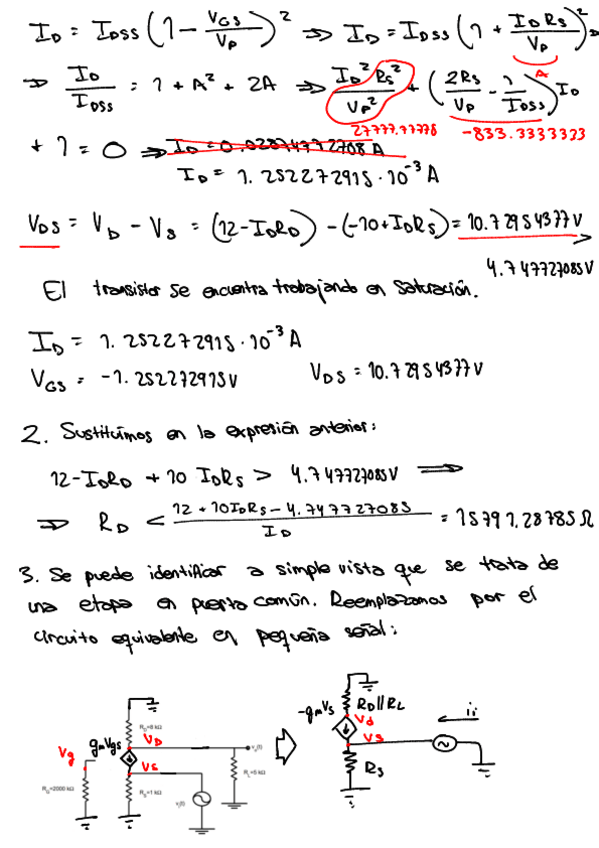 I_D = I_DSS (1 - V_GS/V_P)² ⇒ I_D = I_DSS (1 + I_D R_S/V_P)² ⇒
A
⇒ I_D/I_DSS = 1 + A² + 2A ⇒ I_D² R_S²/V_P² + (2R_S/V_P - 1/I_DSS) I_D
27777.77778 -833.3333333
+ 1 = 0 ⇒
I_D = 1.252272915·10⁻³ A
V_DS = V_D - V_S = (12-I_D R_D) - (-10+I_D R_S) = 10.72954377V
>
4.747727085V
El transistor se encuentra trabajando en saturación.
I_D = 1.252272915·10⁻³ A
V_GS = -1.252272915V V_DS = 10.72954377V
2. Sustituímos en la expresión anterior:
12-I_D R_D + 10 I_D R_S > 4.747727085V ⇒
⇒ R_D < (12 + 10 I_D R_S - 4.747727085)/I_D = 15791.28785Ω
3. Se puede identificar a simple vista que se trata de
una etapa en puerta común. Reemplazamos por el
circuito equivalente en pequeña señal:
-g_m V_S R_D//R_L i_i
R_D=8 kΩ V_d
g_m V_gs V_D v_o(t) V_S
V_g V_S R_L=5 kΩ R_S
R_G=2000 kΩ R_S=1 kΩ v_i(t)